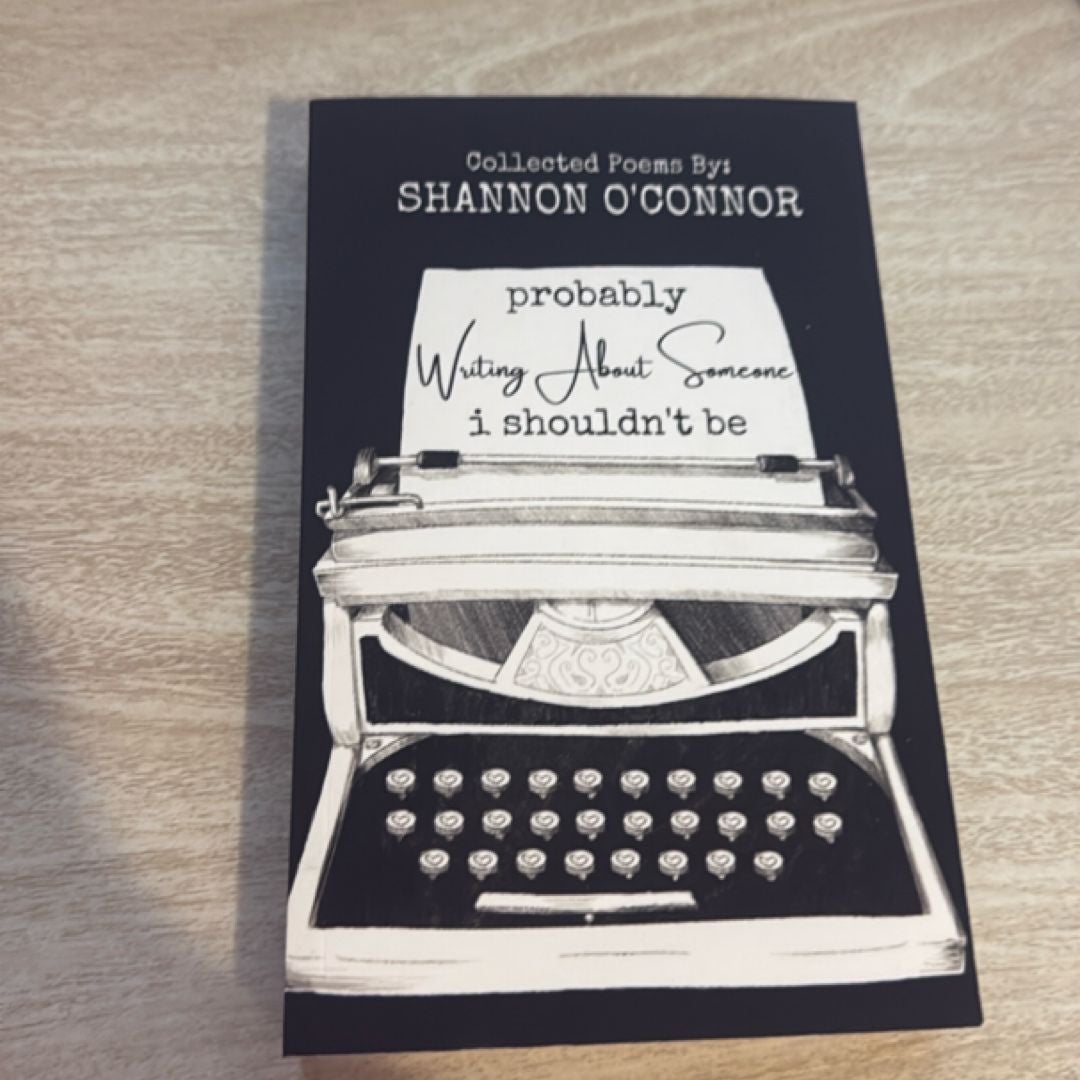 Collected Poems By:
SHANNON O'CONNOR
probably
Writing About Someone
i shouldn't be